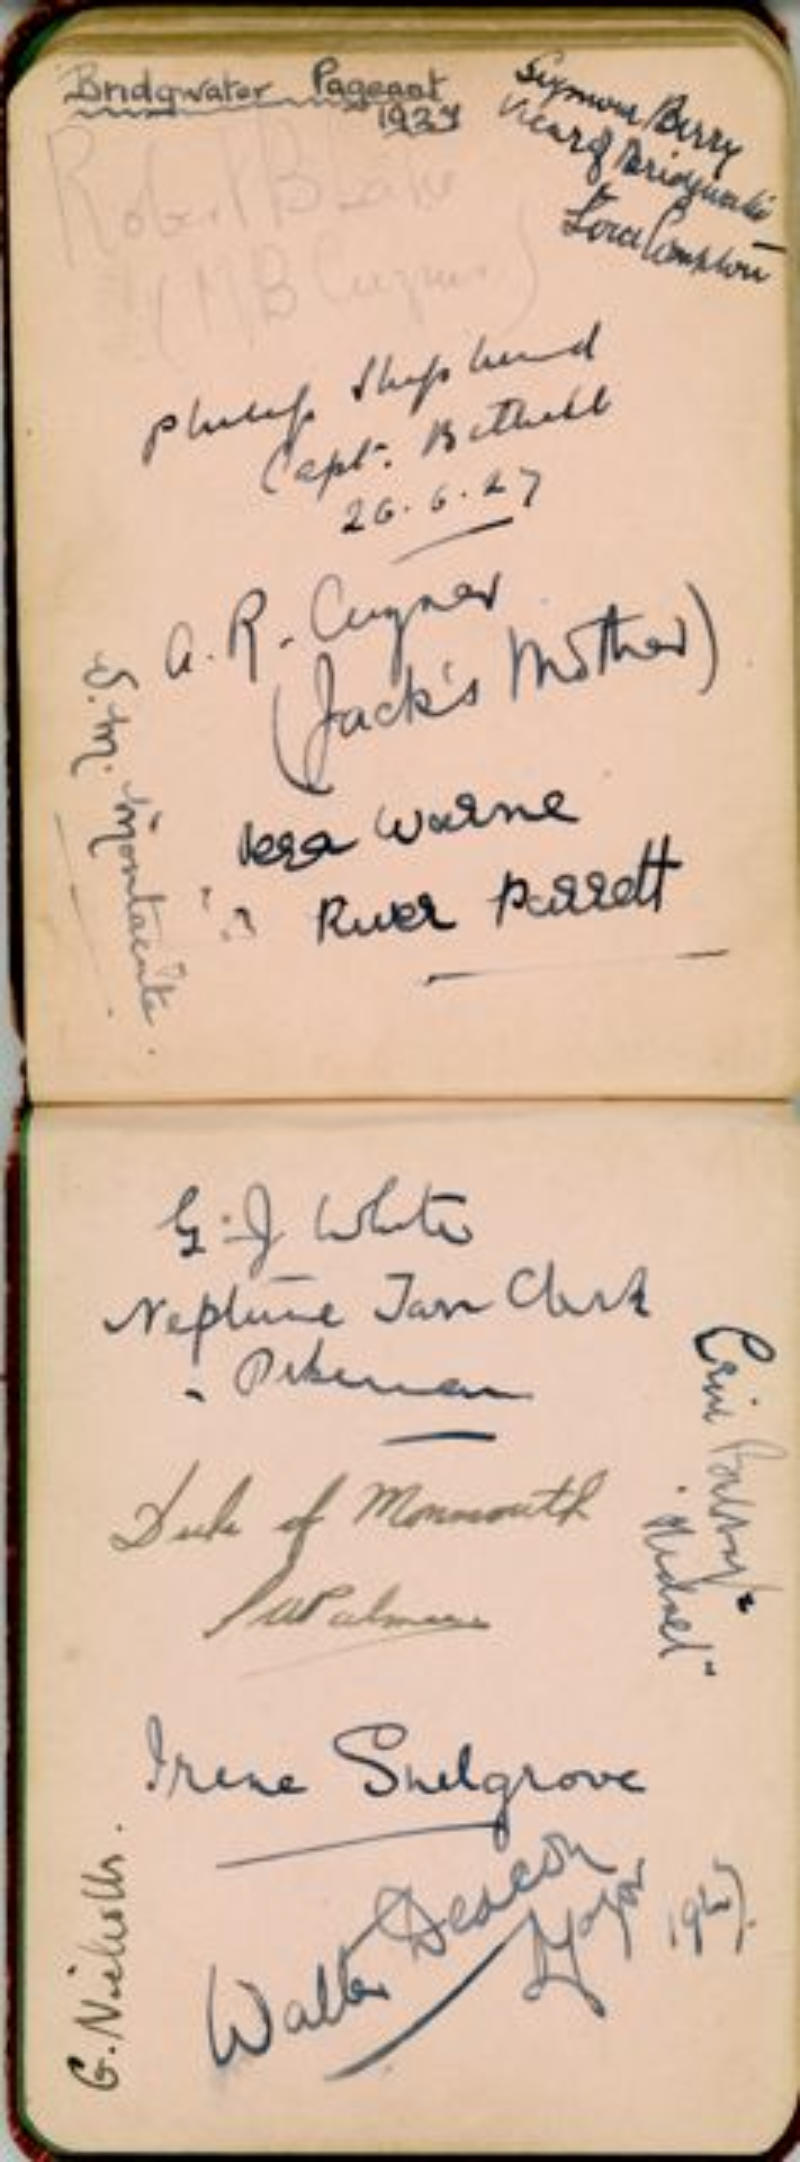 Bridgwater Pageant
1927
Seymour Berry
Vicar of Bridgwater
Lord Compton
Robert Blake
(M B Cugnar)
Philip Shepherd
Capt. Bethell
26.6.27
A. R. Cugnar
(Jack's Mother)
S. M. Montacute.
Vera Warne
River Parrett
G. J White
Neptune Tom Clark
Pikeman
"Hudnel"
Duke of Monmouth
Palmer
Irene Snelgrove
Walter Deacon
Mayor 1927
G. Nicholls.